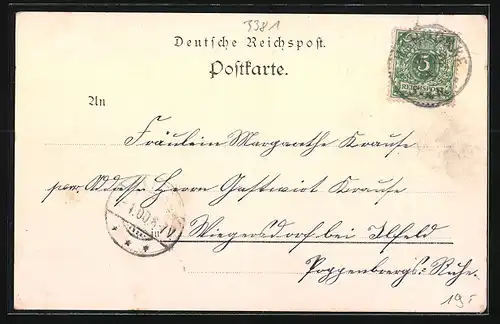 3381
Deutsche Reichspost.
Postkarte.
5
REICHSPOST
An
Fräulein Margarethe Krause
per Adresse Herrn Gastwirt Krause
Wiegersdorf bei Ilfeld
Poppenbergs-Ruhe.
19,-